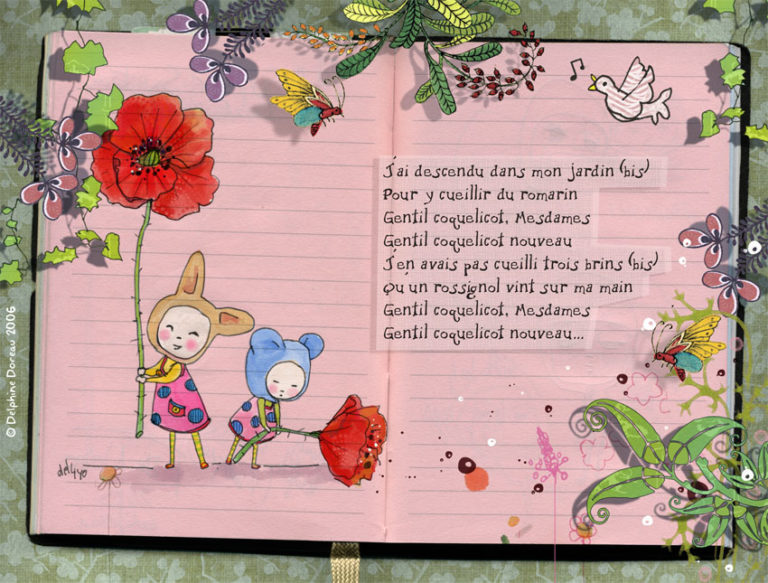 J'ai descendu dans mon jardin (bis)
Pour y cueillir du romarin
Gentil coquelicot, Mesdames
Gentil coquelicot nouveau
J'en avais pas cueilli trois brins (bis)
Qu'un rossignol vint sur ma main
Gentil coquelicot, Mesdames
Gentil coquelicot nouveau...
del4yo
© Delphine Doreau 2006